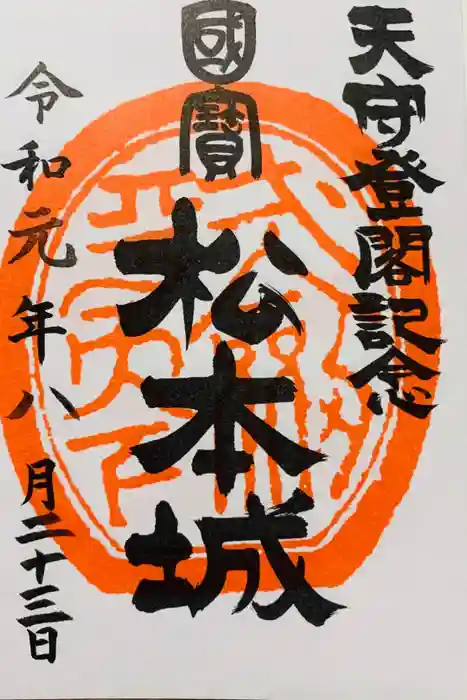 天守登閣記念
國寶
松本城
令和元年八月二十三日